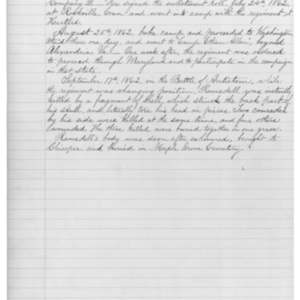 Company D. He signed the enlistment roll, July 24th 1862,
at Rockville, Conn. and went into camp with the regiment at
Hartford.
August 25th 1862, broke camp and proceeded to Washington
was there one day, and went to Camp Chase, near
Alexandria Va. One week after, the regiment was ordered
to proceed through Maryland and to participate in the campaign
in that state.
September 17th 1862, in the Battle of Antietam, while
the regiment was changing position, was instantly
killed by a fragment of shell, which struck the back part of
his skull, and literally tore his head in pieces. Two comrades
by his side were killed at the same time, and five others
wounded. The three killed were buried together in one grave.
body was soon after exhumed, brought to
and buried in Maple Grove Cemetery.